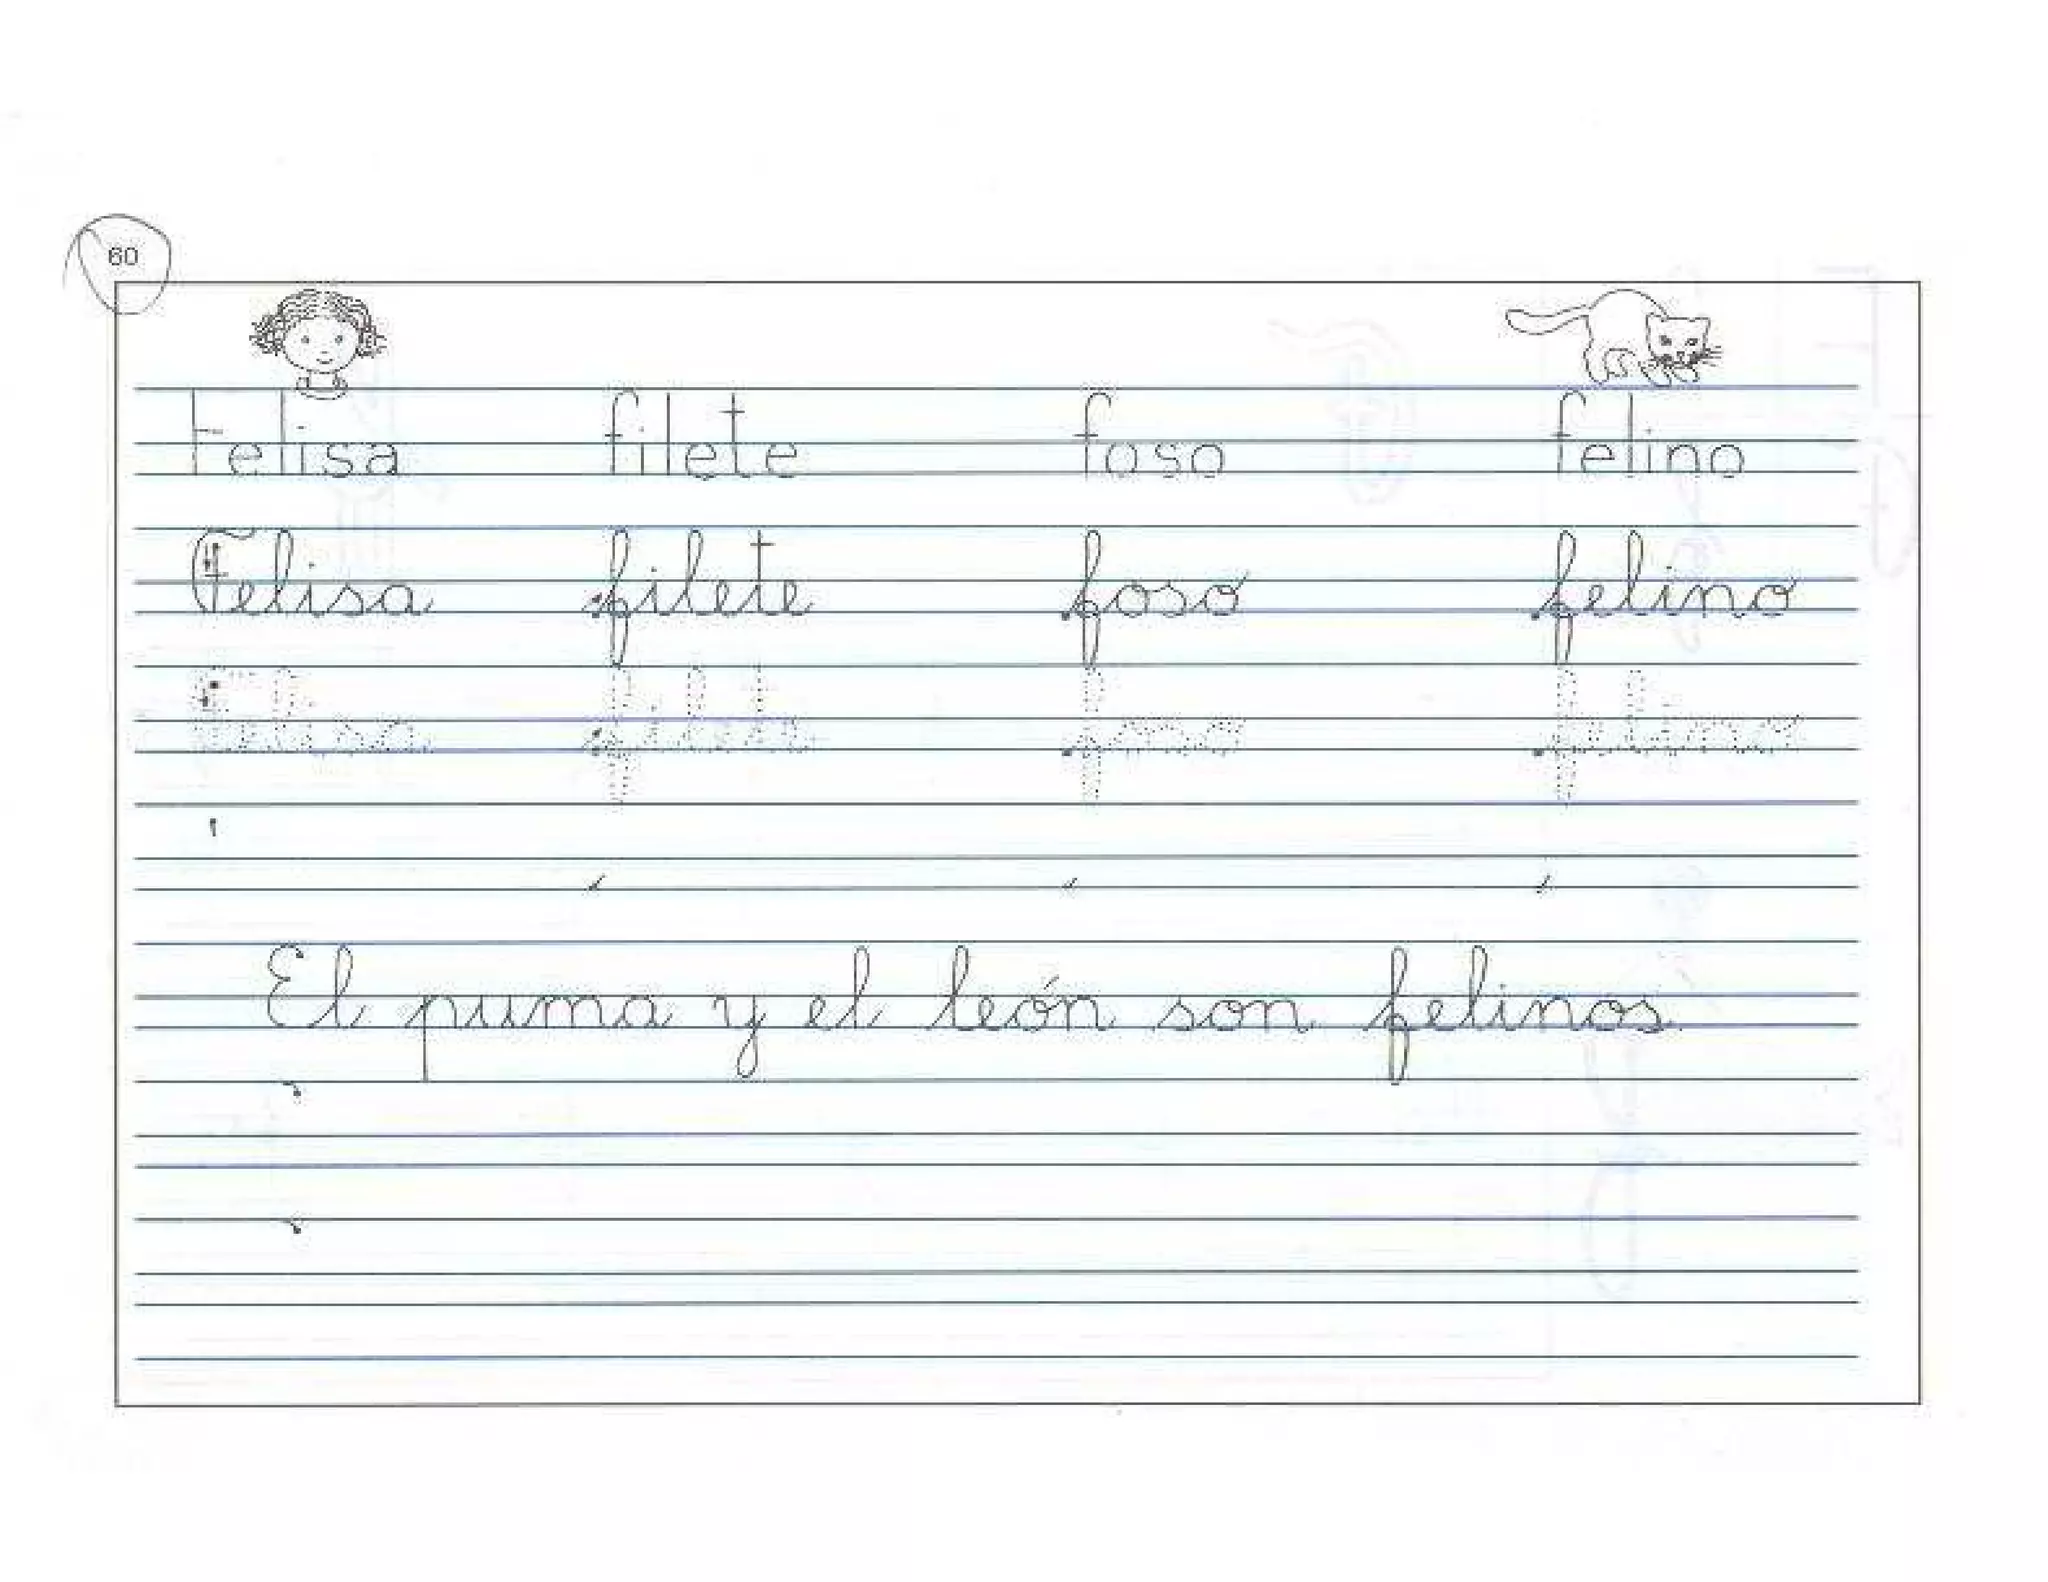 60
Felisa filete foso felino
Felisa filete foso felino
Felisa filete foso felino
El puma y el león son felinos